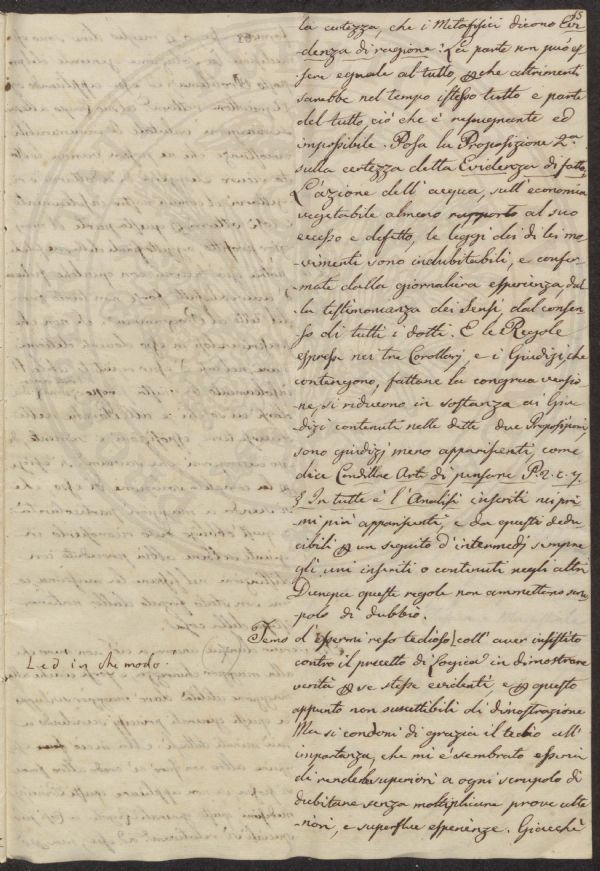 15
la certezza, che i Metafisici dicono Evi-
denza di ragione: La parte non può es-
sere eguale al tutto, che altrimenti
sarebbe nel tempo istesso tutto e parte
del tutto, ciò che è repugnante ed
impossibile. Posa la Proposizione 2.a
sulla certezza detta Evidenza di fatto.
L'azione dell'acqua, sull'economia
vegetabile almeno rapporto al suo
eccesso e defetto, le leggi dei di lei mo-
vimenti sono indubitabili, e confer-
mate dalla giornaliera esperienza, dal-
la testimonianza dei Sensi dal consen-
so di tutti i dotti. E le Regole
espresse nei tre Corollarj, e i Giudizj, che
contengono, fattane la congrua versio-
ne, si riducono in sostanza ai Giu-
dizj contenuti nelle dette due Proposizioni,
sono giudizj meno appariscenti, come
dice Condillac Art. di pensare P. 2. c. 7.
§ In tutte è l'Analisi inseriti nei pri-
mi più appariscenti, e da questi dedu-
cibili un seguito d'intermedj sempre
gli uni inseriti o contenuti negli altri
Dunque queste regole non ammettono scru-
polo di dubbio.
Temo d'essermi reso tedioso coll'aver insistito
contro il precetto di Logica in dimostrare
verità se stesse evidenti, e questo
appunto non suscettibili di dimostrazione
Ma si condoni di grazia il tedio all'
importanza, che mi è sembrato esservi
di renderle superiori a ogni scrupolo di
dubitare senza moltiplicare prove ulte-
riori, e superflue esperienze. Giacchè
Led in she modo.